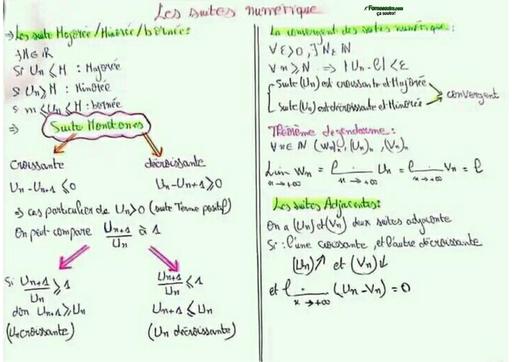 Les suites numérique
Fomesoutra.com
ça soutra!
⇒ Les suite Majorée/Minorée/bornée:
∃ M ∈ ℝ
Si Un ≤ M : Majorée
Si Un ≥ M : Minorée
Si m ≤ Un ≤ M : bornée
⇒ Suite Monotones
Croissante
décroissante
Un - Un+1 ≤ 0
Un - Un+1 ≥ 0
⇒ cas particulier de Un > 0 (suite Terme positif)
On peut compare Un+1/Un à 1
Si Un+1/Un ≥ 1
Un+1/Un ≤ 1
don Un+1 ≥ Un
Un+1 ≤ Un
(Un croissante)
(Un décroissante)
La convergent des suites numérique:
∀ ε > 0, ∃ N ∈ ℕ
∀ n ≥ N ⇒ |Un - l| < ε
Suite (Un) est croissante et Majorée
Suite (Un) est décroissante et Minorée
convergent
Théorème de gendarme:
∀ n ∈ ℕ (Wn), (Un)n, (Vn)n
Lim Wn = l Un = l Vn = l
x → +∞ x → +∞ x → +∞
Les suites Adjacentes:
On a (Un) et (Vn) deux suites adjacente
Si : l'une croissante, et l'autre décroissante
(Un)↗ et (Vn)↓
et l (Un - Vn) = 0
x → +∞